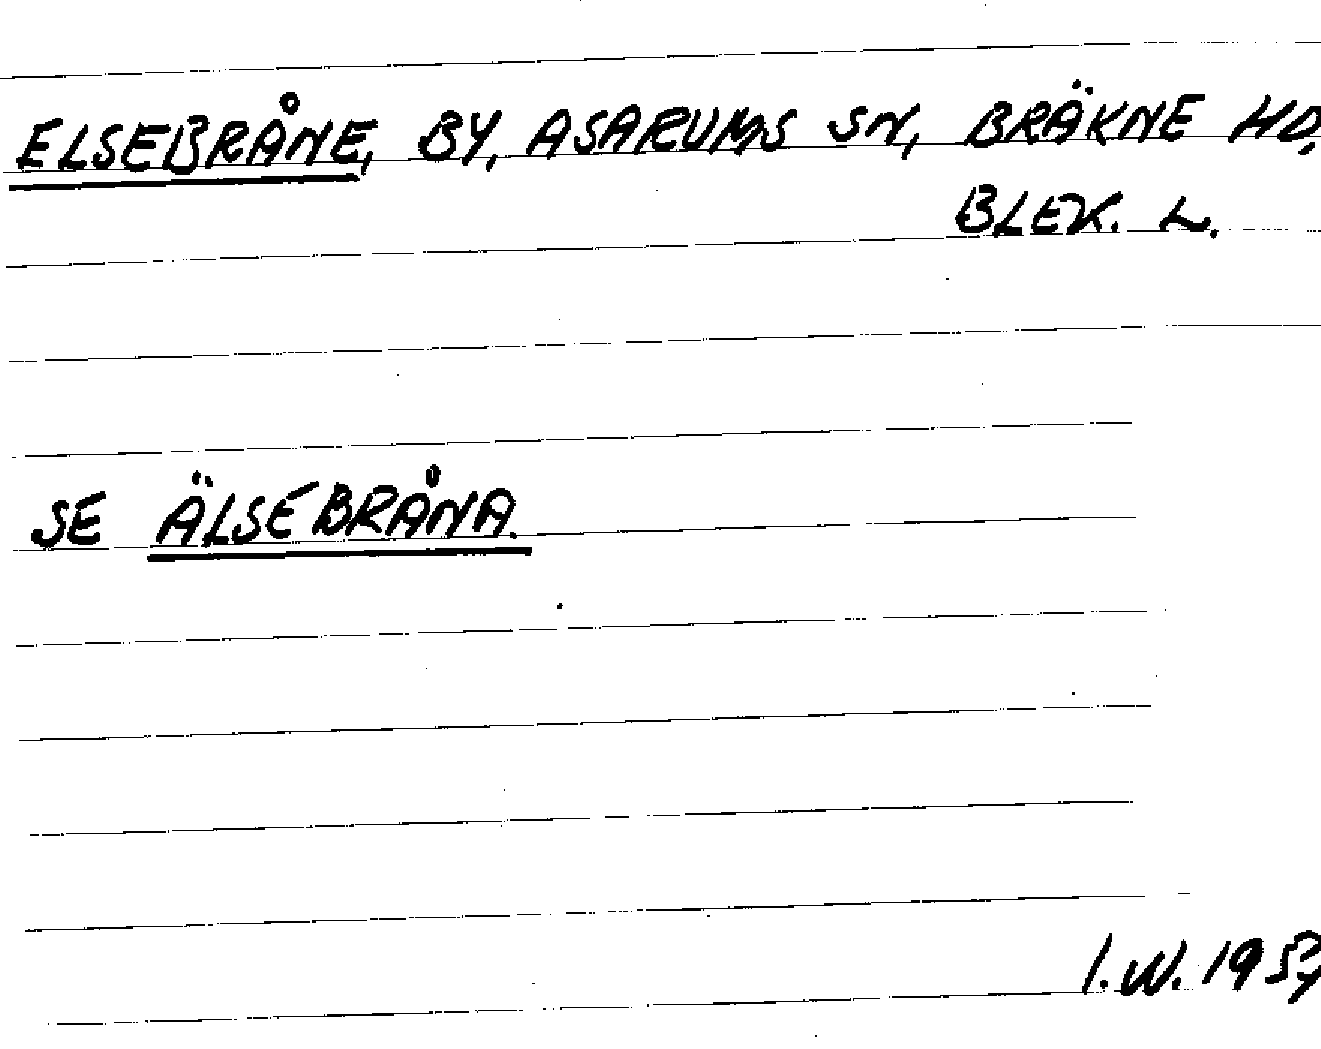 ELSEBRÅNE, BY, ASARUMS SN, BRÄKNE HD,
BLEK. L.
SE ÄLSEBRÅNA.
I.W.